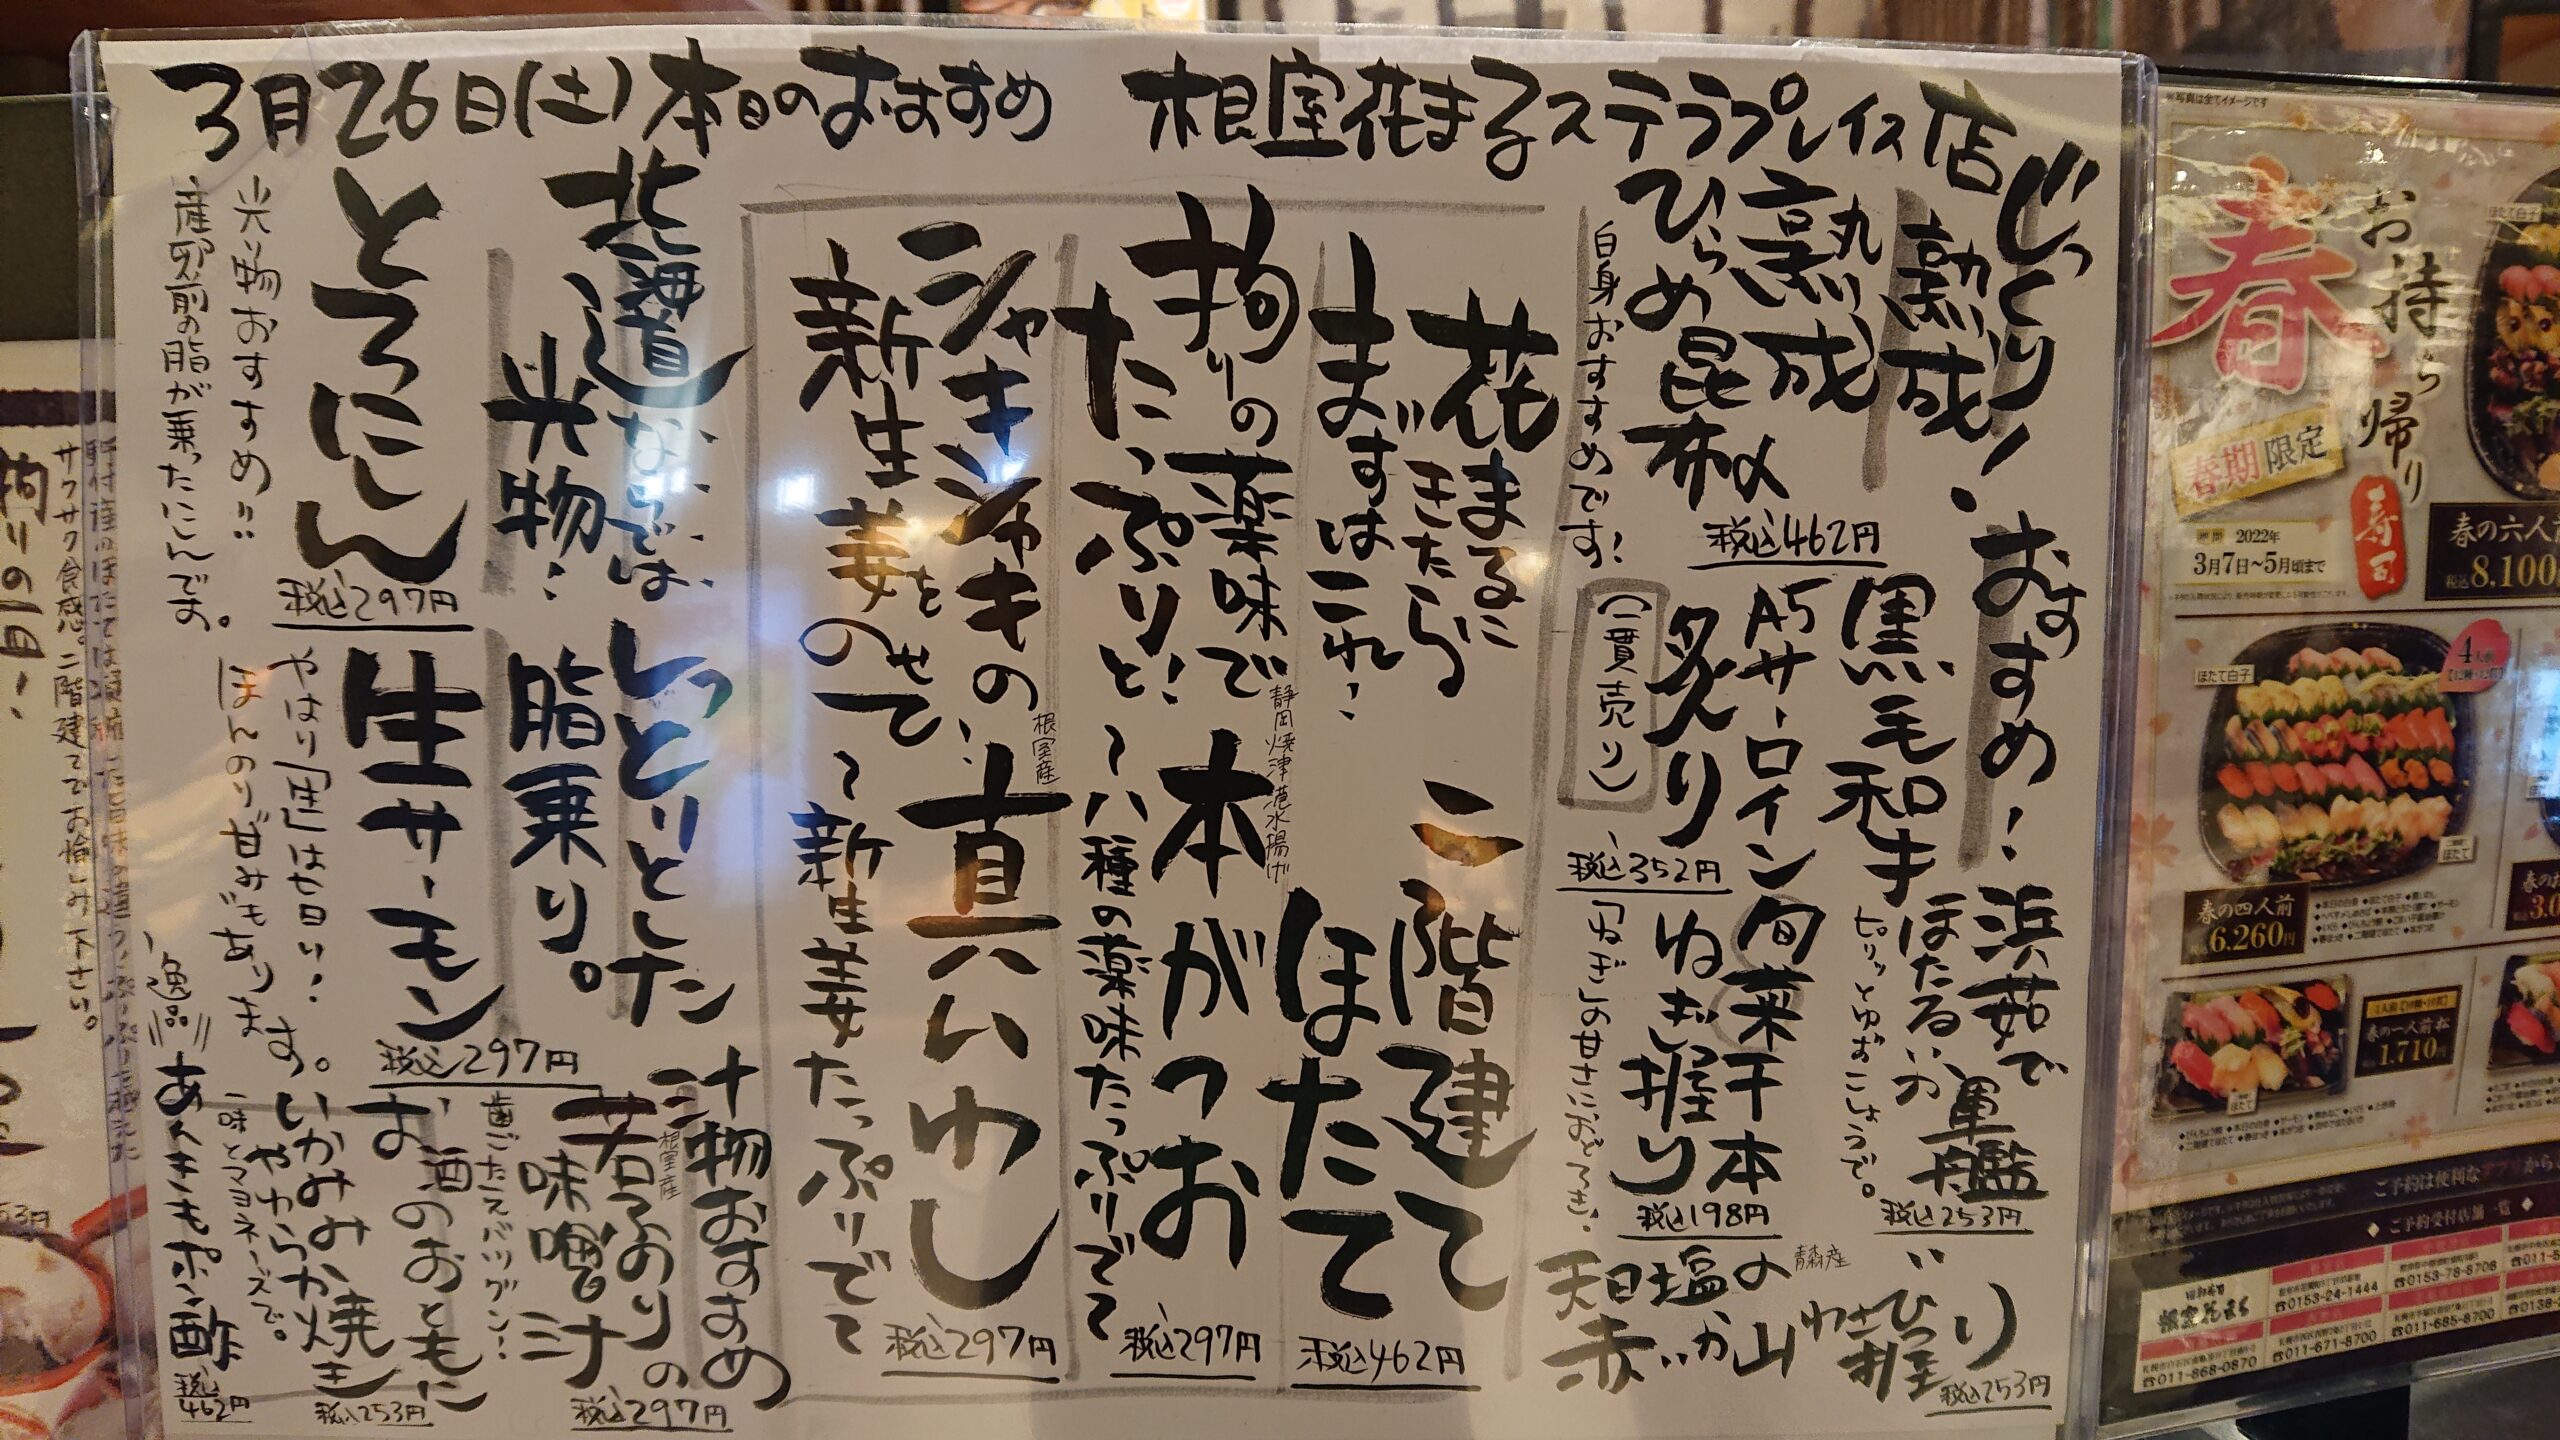 3月26日(土)本日のおすすめ 根室花まるステラプレイス店
じっくり熟成!おすすめ!
丸熟成
ひらめ昆布〆
税込462円
白身おすすめです!
黒毛和牛
A5サーロイン
炙り
(一貫売り)
税込352円
浜茹で
ほたるいか軍艦
ピリッとゆずこしょうで。
税込253円
旬菜干本
ねぎ握り
税込198円
「ねぎ」の甘さにおどろき、
青森産
天日塩の
赤いか山わさび
握り
税込253円
花まるに
きたら
まずはこれ、
二階建て
ほたて
税込462円
拘りの薬味で
たっぷりと!
静岡焼津港水揚げ
本がつお
〜八種の薬味たっぷりでて
税込297円
シャキシャキの、
新生姜を
のせて
根室産
真いわし
〜新生姜たっぷりでて
税込297円
北海道ならでは
光物、
とろにしん
税込297円
光り物おすすめ!!
産卵前の脂が乗ったにしんです。
しっとりとした
脂乗り。
生サーモン
税込297円
やはり「生」は旨い、
ほんのり甘みもあります。
汁物おすすめ
根室産
若ふのりの
味噌汁
税込297円
歯ごたえバツグン、
お酒のおともに
いかみみ焼き
やわらか
税込253円
一味とマヨネーズで。
逸品
あんきもポン酢
税込462円
サクサク食感。二階建てでお愉しみ下さい。
拘りの1日!
※写真は全てイメージです
春
お持ち帰り
寿司
春期限定
期間 2022年
3月7日〜5月頃まで
ほたて白子
春の六人前
税込8,100
4人前
ほたて白子
春の四人前
税込6,260円
春の一人前 松
1,710円
ご予約は便利な
◆ ご予約受付店舗一覧 ◆
根室花まる
☎0153-24-1444
☎0153-78-8708
☎011-868-0870
☎011-671-8700
☎011-685-8700